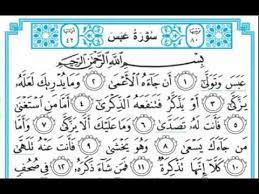 سُورَةُ عَبَسَ
بِسْمِ اللَّهِ الرَّحْمَٰنِ الرَّحِيمِ
عَبَسَ وَتَوَلَّىٰ ١ أَن جَاءَهُ الْأَعْمَىٰ ٢ وَمَا يُدْرِيكَ لَعَلَّهُ
يَزَّكَّىٰ ٣ أَوْ يَذَّكَّرُ فَتَنفَعَهُ الذِّكْرَىٰ ٤ أَمَّا مَنِ اسْتَغْنَىٰ
٥ فَأَنتَ لَهُ تَصَدَّىٰ ٦ وَمَا عَلَيْكَ أَلَّا يَزَّكَّىٰ ٧ وَأَمَّا
مَن جَاءَكَ يَسْعَىٰ ٨ وَهُوَ يَخْشَىٰ ٩ فَأَنتَ عَنْهُ تَلَهَّىٰ
١٠ كَلَّا إِنَّهَا تَذْكِرَةٌ ١١ فَمَن شَاءَ ذَكَرَهُ ١٢ فِي صُحُفٍ